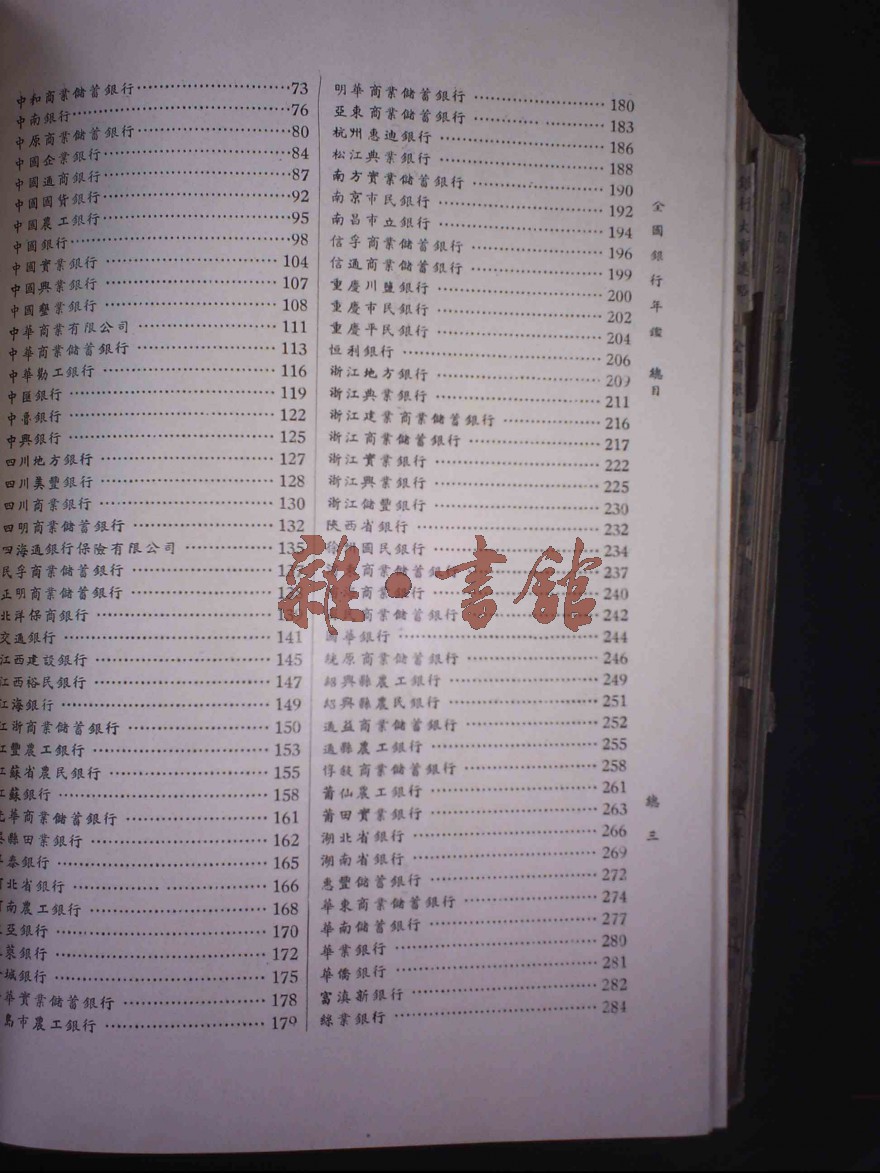 中和商業儲蓄銀行……73
中南銀行……76
中原商業儲蓄銀行……80
中國企業銀行……84
中國通商銀行……87
中國國貨銀行……92
中國農工銀行……95
中國銀行……98
中國實業銀行……104
中國興業銀行……107
中國墾業銀行……108
中華商業有限公司……111
中華商業儲蓄銀行……113
中華勸工銀行……116
中匯銀行……119
中魯銀行……122
中興銀行……125
四川地方銀行……127
四川美豐銀行……128
四川商業銀行……130
四明商業儲蓄銀行……132
四海通銀行保險有限公司……135
民孚商業儲蓄銀行……
正明商業儲蓄銀行……
北洋保商銀行……
交通銀行……141
江西建設銀行……145
江西裕民銀行……147
江海銀行……149
江浙商業儲蓄銀行……150
江豐農工銀行……153
江蘇省農民銀行……155
江蘇銀行……158
華商業儲蓄銀行……161
縣田業銀行……162
泰銀行……165
河北省銀行……166
河南農工銀行……168
亞銀行……170
萊銀行……172
城銀行……175
華實業儲蓄銀行……178
島市農工銀行……179
明華商業儲蓄銀行……180
亞東商業儲蓄銀行……183
杭州惠迪銀行……186
松江典業銀行……188
南方實業儲蓄銀行……190
南京市民銀行……192
南昌市立銀行……194
信孚商業儲蓄銀行……196
信通商業儲蓄銀行……199
重慶川鹽銀行……200
重慶市民銀行……202
重慶平民銀行……204
恒利銀行……206
浙江地方銀行……209
浙江典業銀行……211
浙江建業商業儲蓄銀行……216
浙江商業儲蓄銀行……217
浙江實業銀行……222
浙江興業銀行……225
浙江儲豐銀行……230
陝西省銀行……232
國民銀行……234
商業儲蓄銀行……237
商業銀行……240
商業儲蓄銀行……242
國華銀行……244
統原商業儲蓄銀行……246
紹興縣農工銀行……249
紹興縣農民銀行……251
通益商業儲蓄銀行……252
通縣農工銀行……255
惇敍商業儲蓄銀行……258
莆仙農工銀行……261
莆田實業銀行……263
湖北省銀行……266
湖南省銀行……269
惠豐儲蓄銀行……272
華東商業儲蓄銀行……274
華南儲蓄銀行……277
華業銀行……280
華僑銀行……281
富滇新銀行……282
綢業銀行……284
全國銀行年鑑 總目
總三
雜·書館